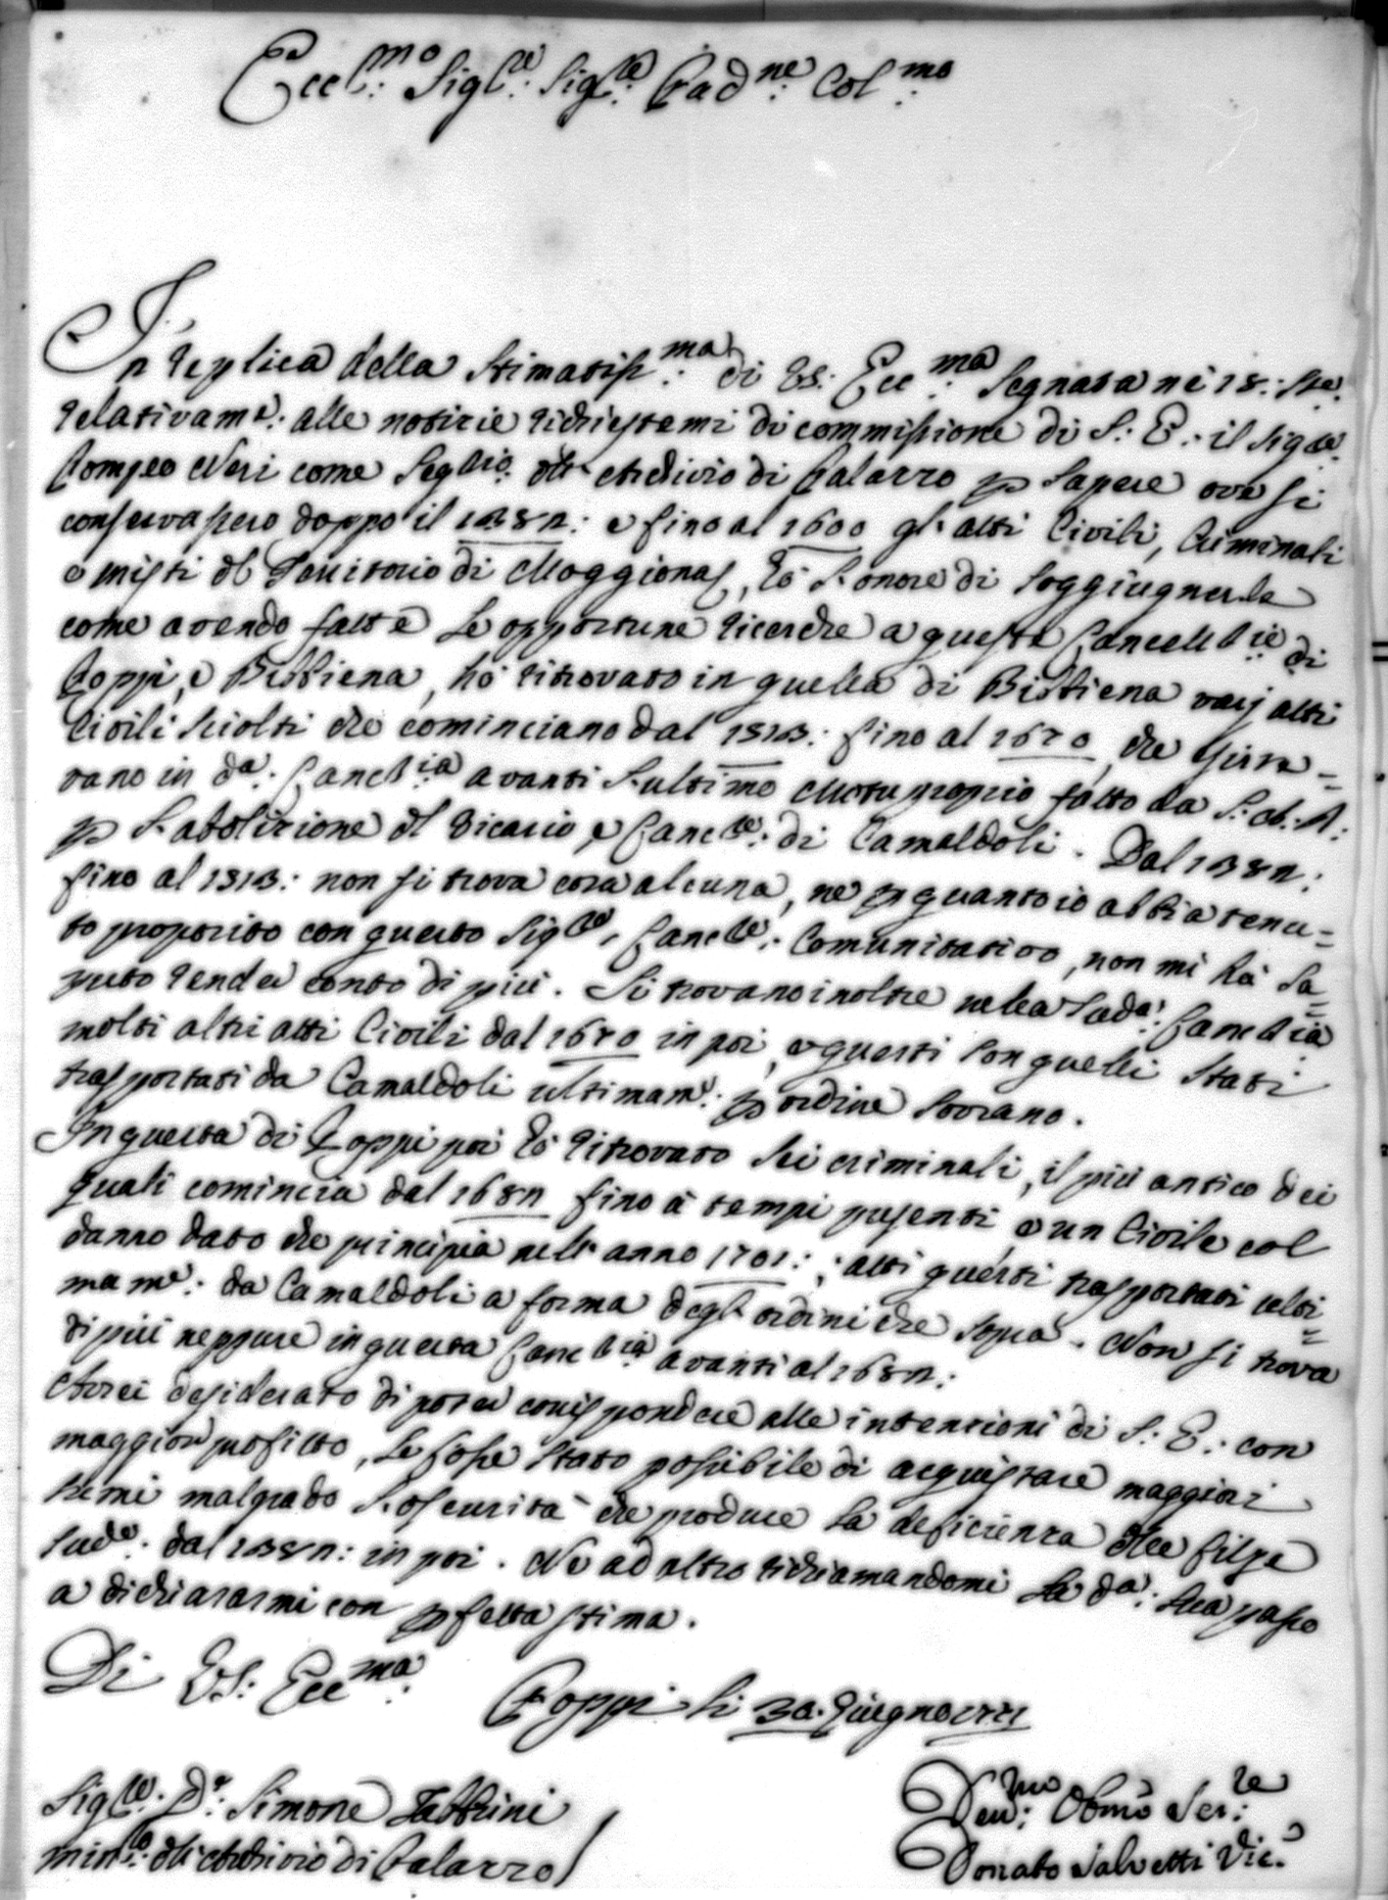 Eccl.mo Sig.re Sig.re Pad.ne Col.mo
In replica della Stimatiss.ma di VS. Ecc.ma segnata ne 18: Ste.
relativam.e: alle notizie richiestemi di commissione di S: E: il Sig.re
Pompeo Neri come Seg.rio dll' Archivio di Palazzo p sapere ove si
conservassero doppo il 1382: e fino al 1600 gl' atti Civili, Criminali
e misti dl Territorio di Moggiona, hò l'onore di soggiugnerle
come avendo fatte le opportune ricerche a queste Cancell.rie di
Poppi, e Bibbiena, hò ritrovato in quella di Bibbiena varj atti
Civili sciolti che cominciano dal 1513: fino al 1670, che
vano in d.a: Canc.ria avanti l'ultimo Motuproprio fatto da S: A: R:
p l'abolizione dl Vicario, e Canc.re: di Camaldoli. Dal 1382:
fino al 1513: non si trova cosa alcuna, ne p quanto io abbia tenu=
to proposito con questo Sig.re Canc.re: Comunitativo, non mi hà sa=
puto render conto di più. Si trovano inoltre nella sud.a: Canc.ria
molti altri atti Civili dal 1670 in poi, e questi son quelli stati
trasportati da Camaldoli ultimam.e: p ordine sovrano.
In questa di Poppi poi hò ritrovato sei criminali, il più antico dei
quali comincia dal 1682 fino à tempi presenti, e un Civile col
danno dato che principia nell' anno 1701:; atti questi trasportati ulti=
mam.e: da Camaldoli a forma degl' ordini che sopra. Non si trova
di più neppure in questa Canc.ria avanti al 1682:
Avrei desiderato di poter corrispondere alle intenzioni di S: E: con
maggior profitto, se fosse stato possibile di acquistare maggiori
lumi malgrado l'oscurità che produce la deficienza dlle filze
sud.e: dal 1382: in poi. Ne ad altro richiamandomi la d.a: sua passo
a dichiararmi con pfetta stima.
Di VS: Ecc.ma
Poppi li 30. Giugno 1771
Sig.re D.r: Simone Fabbrini
min.ro: dll' Archivio di Palazzo
Dev.mo: Obmo Ser.re:
Donato Salvetti Vic.o